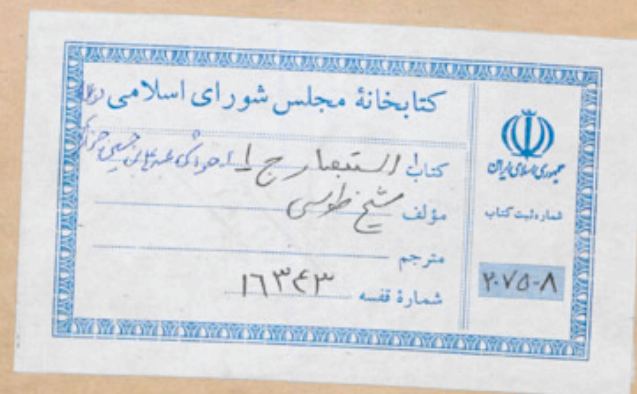 کتابخانهٔ مجلس شورای اسلامی
کتاب الاستبصار ج ۱
مؤلف شیخ طوسی
مترجم
شمارهٔ قفسه ۱۶۳۴۳
جمهوری اسلامی ایران
شماره ثبت کتاب
۲۰۷۵۰۸